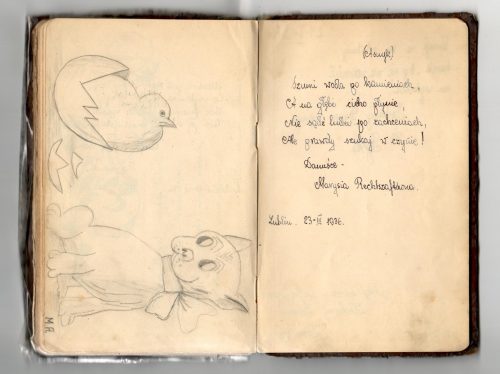 (Asnyk)
Szumi woda po kamieniach,
A na głębi cicho płynie,
Nie sądź ludzi po zachceniach,
Ale prawdy szukaj w czynie!
Danusce -
Marysia Rechtszaftówna.
Lublin. 23-III 1926.
M.R.